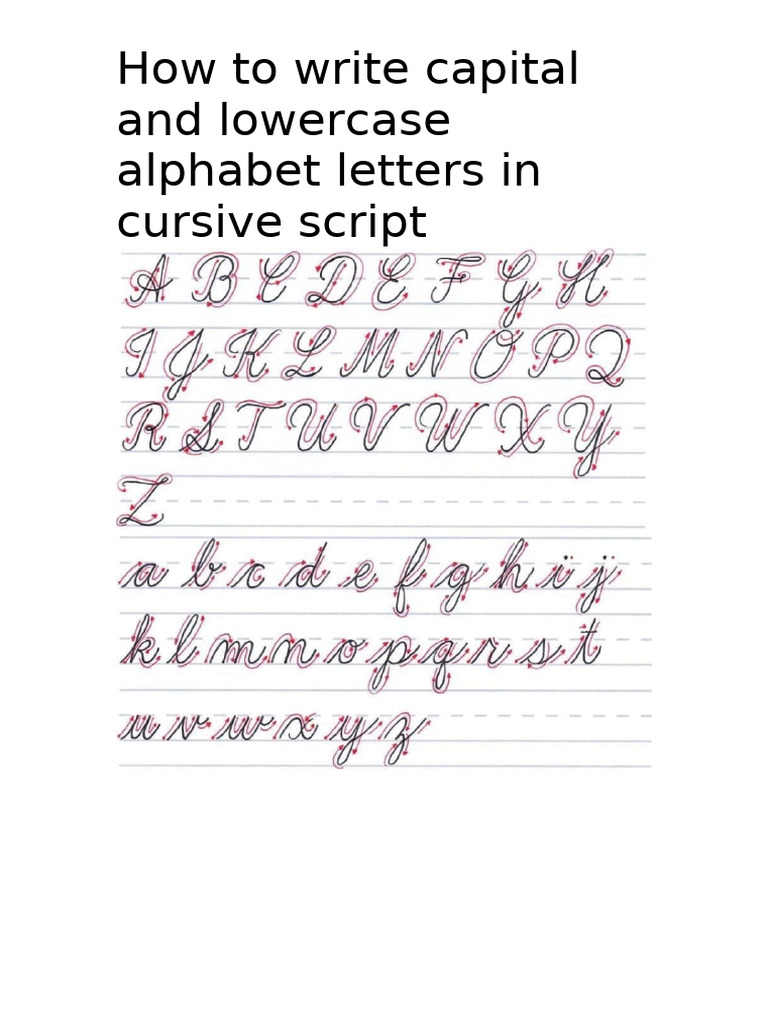 How to write capital
and lowercase
alphabet letters in
cursive script
A B C D E F G H
I J K L M N O P Q
R S T U V W X Y
Z
a b c d e f g h i j
k l m n o p q r s t
u v w x y z